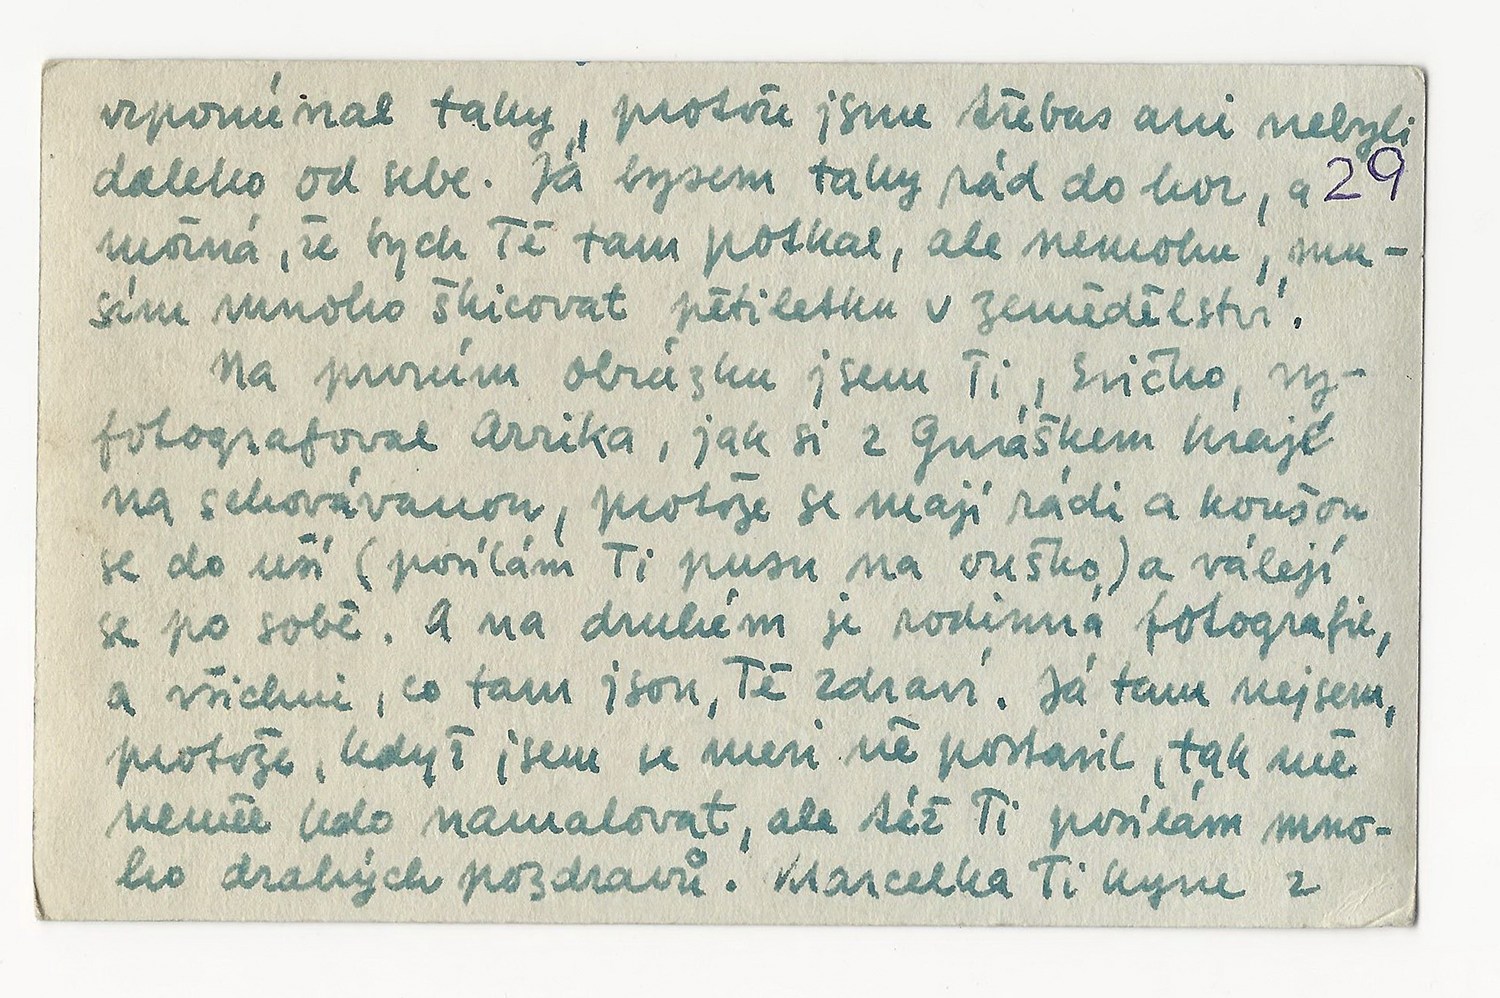 vzpomínal taky, protože jsme třebas ani nebyli
daleko od sebe. Já bysem taky rád do hor, a
29
možná, že bych Tě tam potkal, ale nemohu, mu-
sím mnoho škicovat pětiletku v zemědělství.
Na prvním obrázku jsem Ti, Evičko, vy-
fotografoval Arrika, jak si z hrají
na schovávanou, protože se mají rádi a koušou
se do uší (posílám Ti pusu na ouško) a válejí
se po sobě. A na druhém je rodinná fotografie,
a všichni, co tam jsou, Tě zdraví. Já tam nejsem,
protože, když jsem se mezi ně postavil, tak mě
neměl kdo namalovat, ale též Ti posílám mno-
ho drahých pozdravů. Marcelka Ti kyne z